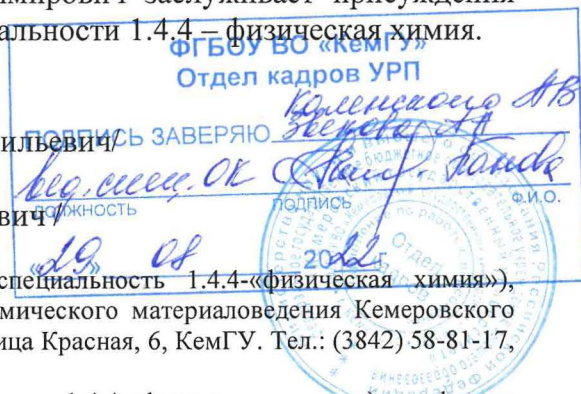 мирович заслуживает присуждения
альности 1.4.4 – физическая химия.
ФГБОУ ВО «КемГУ»
Отдел кадров УРП
Каленского АВ
ПОДПИСЬ ЗАВЕРЯЮ Зверева АА
ильевич/
вед. спец. ОК Панова
ДОЛЖНОСТЬ ПОДПИСЬ Ф.И.О.
вич /
«29» 08 2022 г.
специальность 1.4.4-«физическая химия»),
имического материаловедения Кемеровского
ица Красная, 6, КемГУ. Тел.: (3842) 58-81-17,